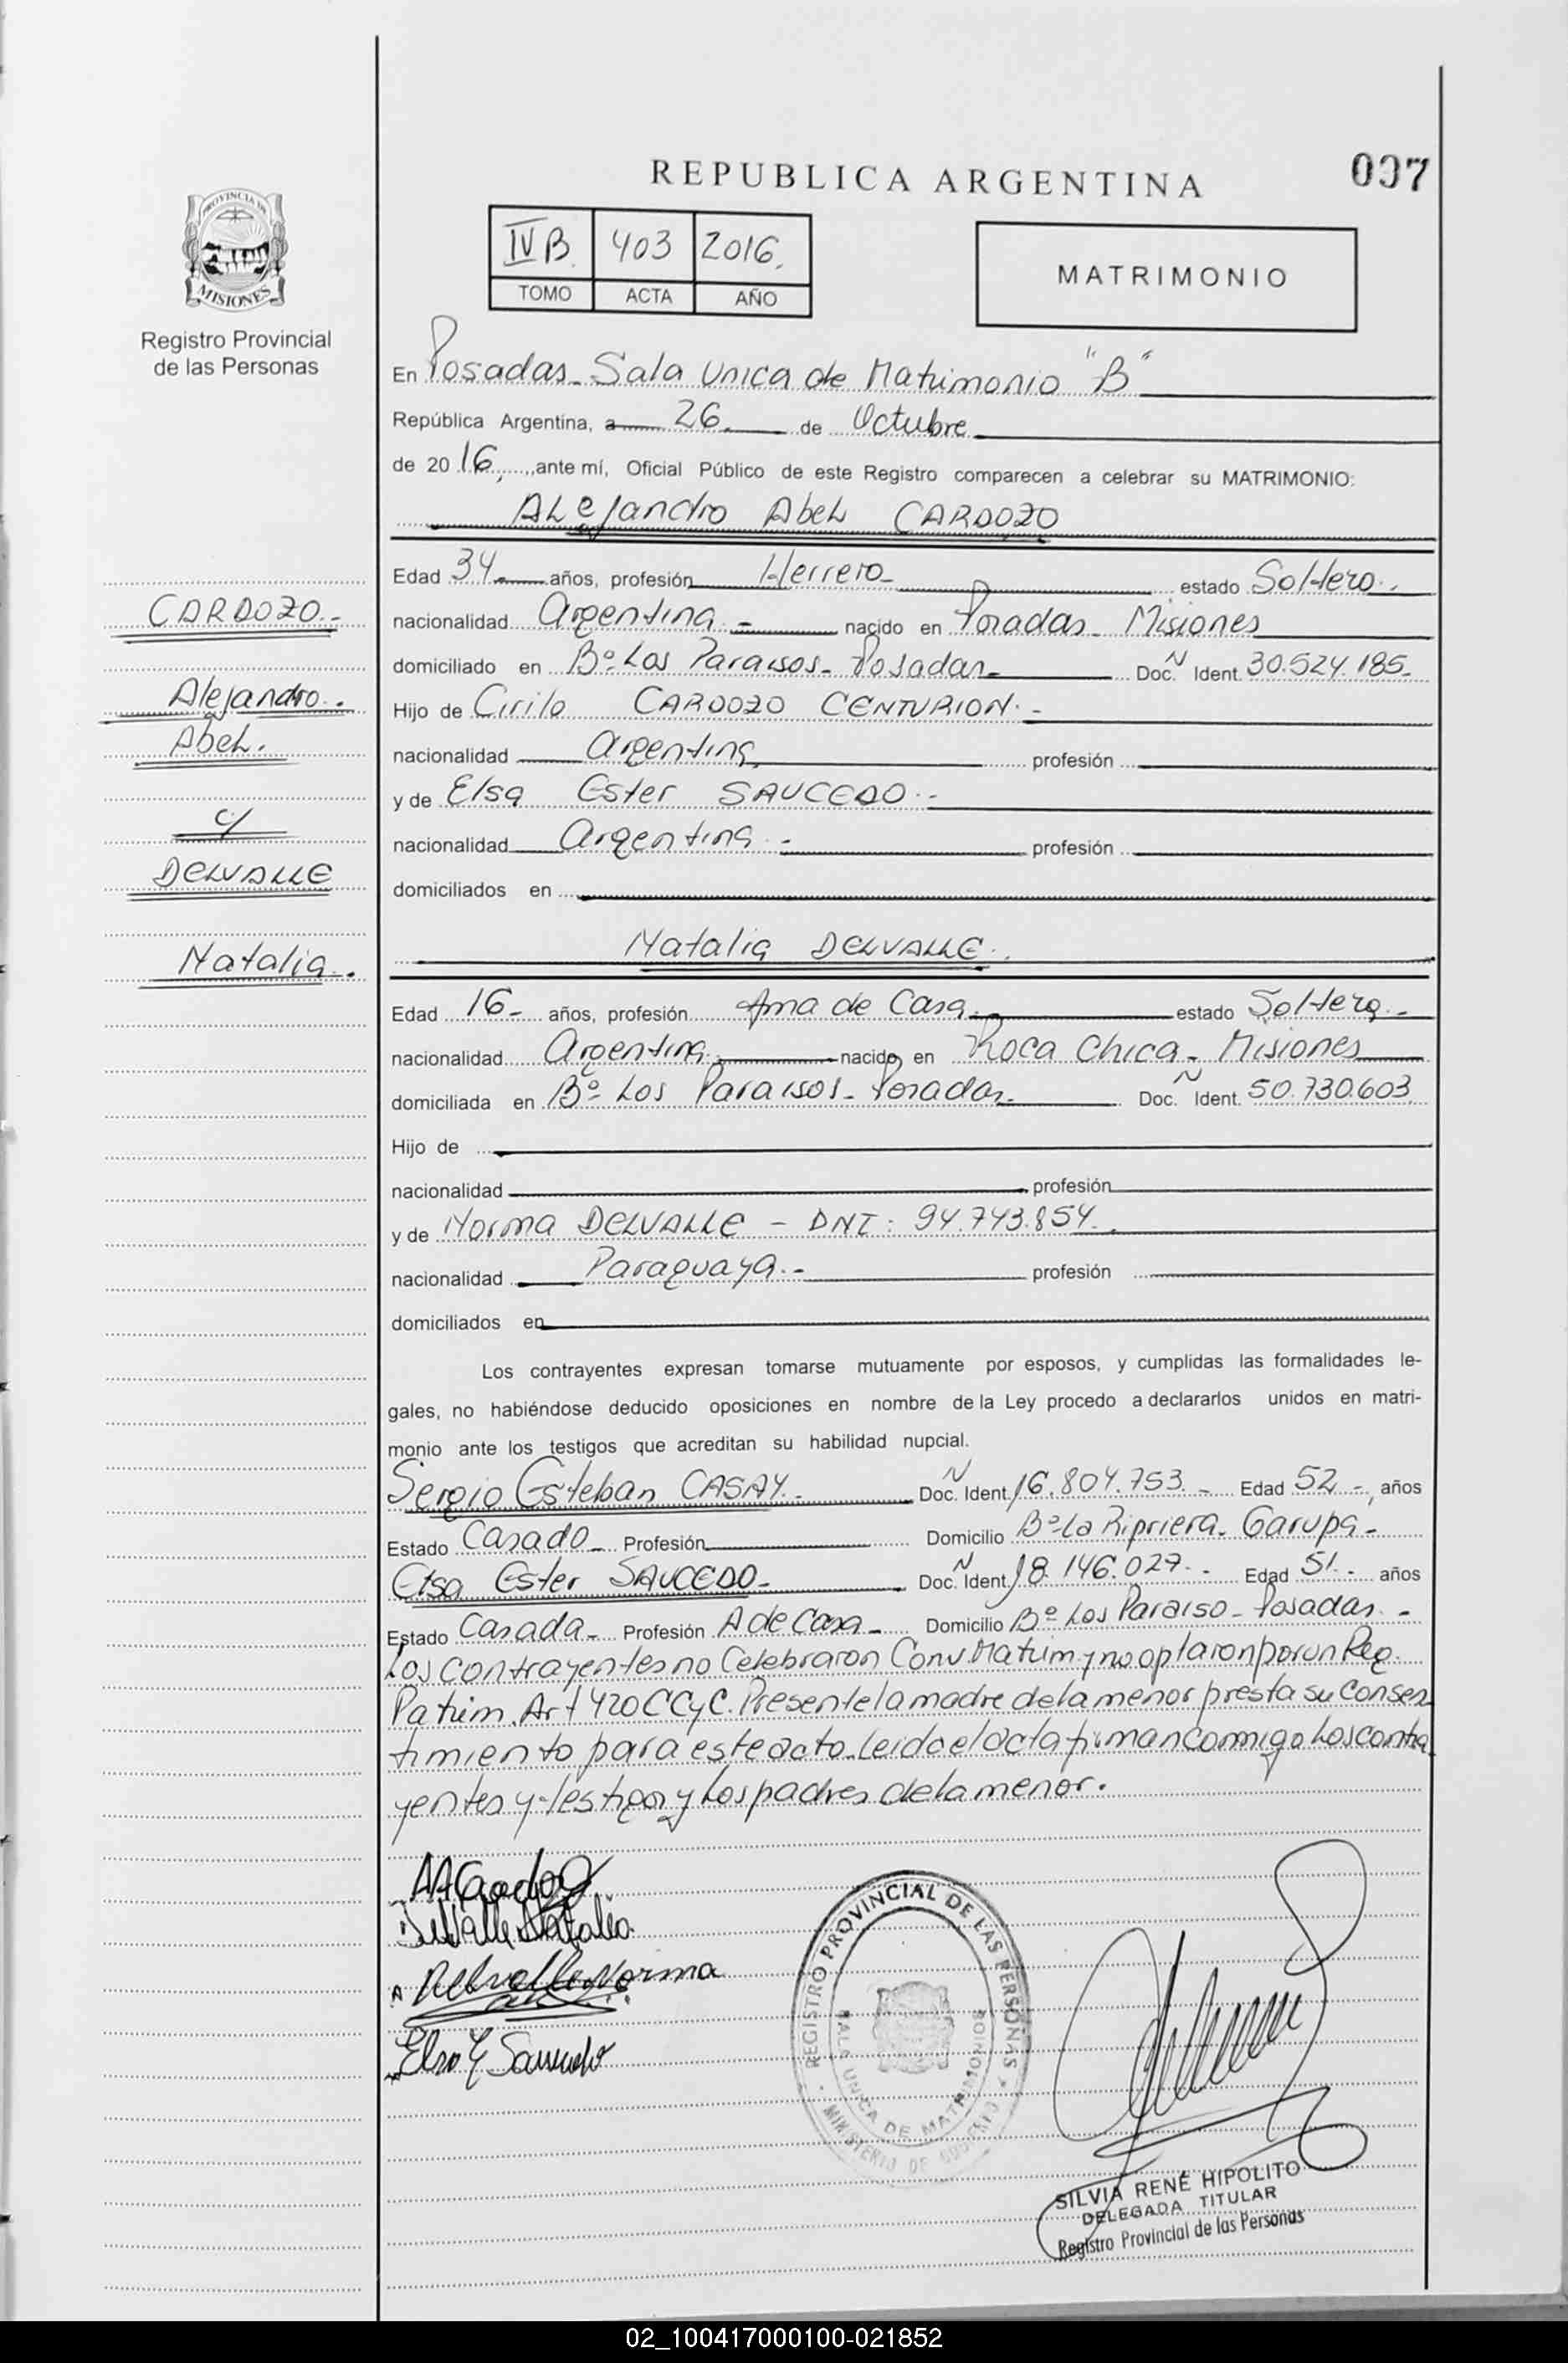 REPUBLICA ARGENTINA
037
PROVINCIA DE
MISIONES
Registro Provincial
de las Personas
IV B. 403 2016.
TOMO ACTA AÑO
MATRIMONIO
En Posadas - Sala Unica de Matrimonio "B"
República Argentina, a 26 de Octubre
de 20 16, ante mí, Oficial Público de este Registro comparecen a celebrar su MATRIMONIO:
Alejandro Abel CARDOZO
Edad 34 años, profesión Herrero estado Soltero.
nacionalidad Argentina nacido en Posadas - Misiones
domiciliado en Bº Los Paraisos - Posadas Doc. N Ident. 30.524.185
Hijo de Cirilo CARDOZO CENTURION.
nacionalidad Argentina profesión
y de Elsa Ester SAUCEDO.
nacionalidad Argentina profesión
domiciliados en
CARDOZO.-
Alejandro.
Abel.
c/
DELVALLE
Natalia.
Natalia DELVALLE.
Edad 16 años, profesión Ama de Casa estado Soltera.
nacionalidad Argentina nacido en Roca Chica - Misiones
domiciliada en Bº Los Paraisos - Posadas Doc. N Ident. 50.730.603
Hijo de
nacionalidad profesión
y de Norma DELVALLE - DNI: 94.743.854.
nacionalidad Paraguaya.- profesión
domiciliados en
Los contrayentes expresan tomarse mutuamente por esposos, y cumplidas las formalidades le-
gales, no habiéndose deducido oposiciones en nombre de la Ley procedo a declararlos unidos en matri-
monio ante los testigos que acreditan su habilidad nupcial.
Sergio Esteban CASAY.- Doc. N Ident. 16.804.753.- Edad 52 -, años
Estado Casado - Profesión Domicilio Bº La Ripiera - Garupa -
Elsa Ester SAUCEDO - Doc. N Ident. 18.146.027.- Edad 51.- años
Estado Casada - Profesión A de Casa - Domicilio Bº Los Paraiso - Posadas.-
Los contrayentes no Celebraron Conv Matrim y no optaron por un Reg.
Patrim. Art 420 CCyC. Presente la madre de la menor presta su Consen
timiento para este acto. Leida el acta firman Conmigo Los contra
yentes y testigos y Los padres de la menor.
Delvalle Natalia
Delvalle Norma
Elsa E Saucedo
REGISTRO PROVINCIAL DE LAS PERSONAS
SALA UNICA DE MATRIMONIOS
MINISTERIO DE GOBIERNO
SILVIA RENÉ HIPOLITO
DELEGADA TITULAR
Registro Provincial de las Personas
02_100417000100-021852